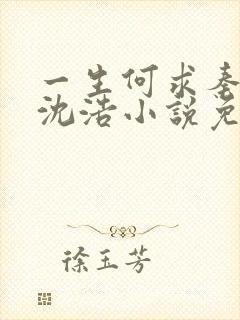 一生何求秦
沈浩小說免
徐玉芳